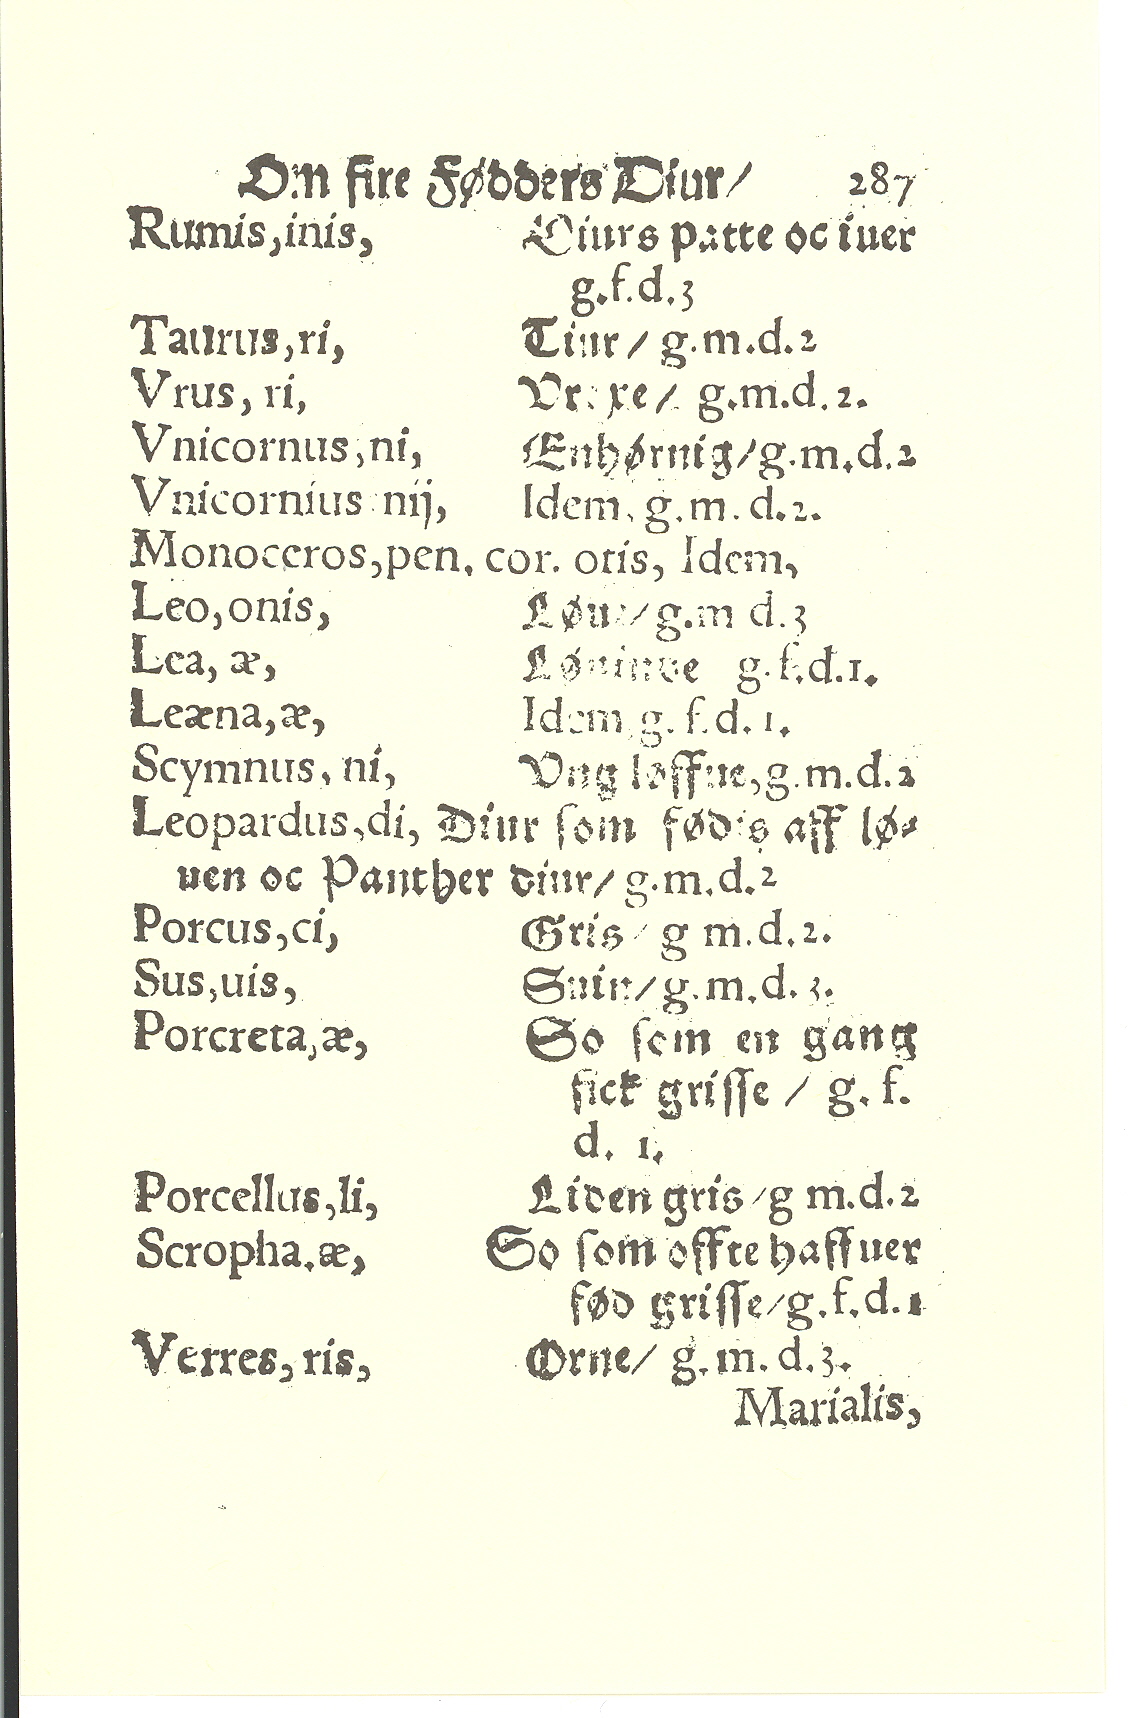 Om fire Fødders Diur/ 287
Rumis,inis, Diurs patte oc iuer
g.f.d.3
Taurus,ri, Tiur / g.m.d.2
Vrus, ri, g.m.d.2.
Vnicornus,ni, Enhørnig/g.m.d.2
Vnicornius nij, Idem, g.m.d.2.
Monoceros,pen. cor. otis, Idem,
Leo,onis, Løue/g.m d.3
Lea, æ, Løninde g.f.d.1.
Leæna,æ, Idem g.f.d.1.
Scymnus, ni, Vng løffue,g.m.d.2
Leopardus,di, Diur som fødis aff lø-
uen oc Panther diur/ g.m.d.2
Porcus,ci, Gris/ g m.d.2.
Sus,uis, Suin/g.m.d.3.
Porcreta,æ, So som en gang
fick grisse / g. f.
d. 1.
Porcellus,li, Liden gris/g m.d.2
Scropha,æ, So som offte haffuer
fød grisse/g.f.d.1
Verres, ris, Orne/ g.m.d.3.
Marialis,